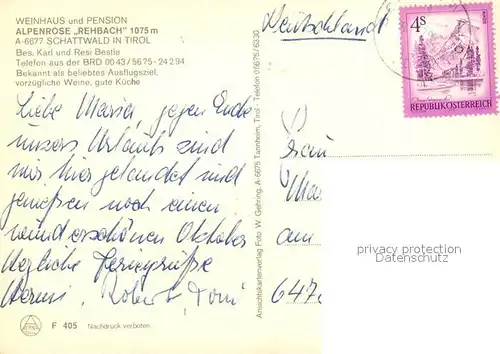 WEINHAUS und PENSION
ALPENROSE „REHBACH" 1075 m
A-6677 SCHATTWALD IN TIROL
Bes. Karl und Resi Bestle
Telefon aus der BRD 0043/5675-24294
Bekannt als beliebtes Ausflugsziel,
vorzügliche Weine, gute Küche
Liebe Maria, gegen Ende
unseres Urlaubs sind
wir hier gelandet und
genießen noch einen
wunderschönen Oktober
Herzliche Feriengrüsse
Robert, Toni
F 405 Nachdruck verboten
Ansichtskartenverlag Foto W. Gehring, A-6675 Tannheim, Tirol - Telefon 05675/6330
(Deutschland)
4S
REPUBLIK ÖSTERREICH
Frau
an
647
privacy protection
Datenschutz